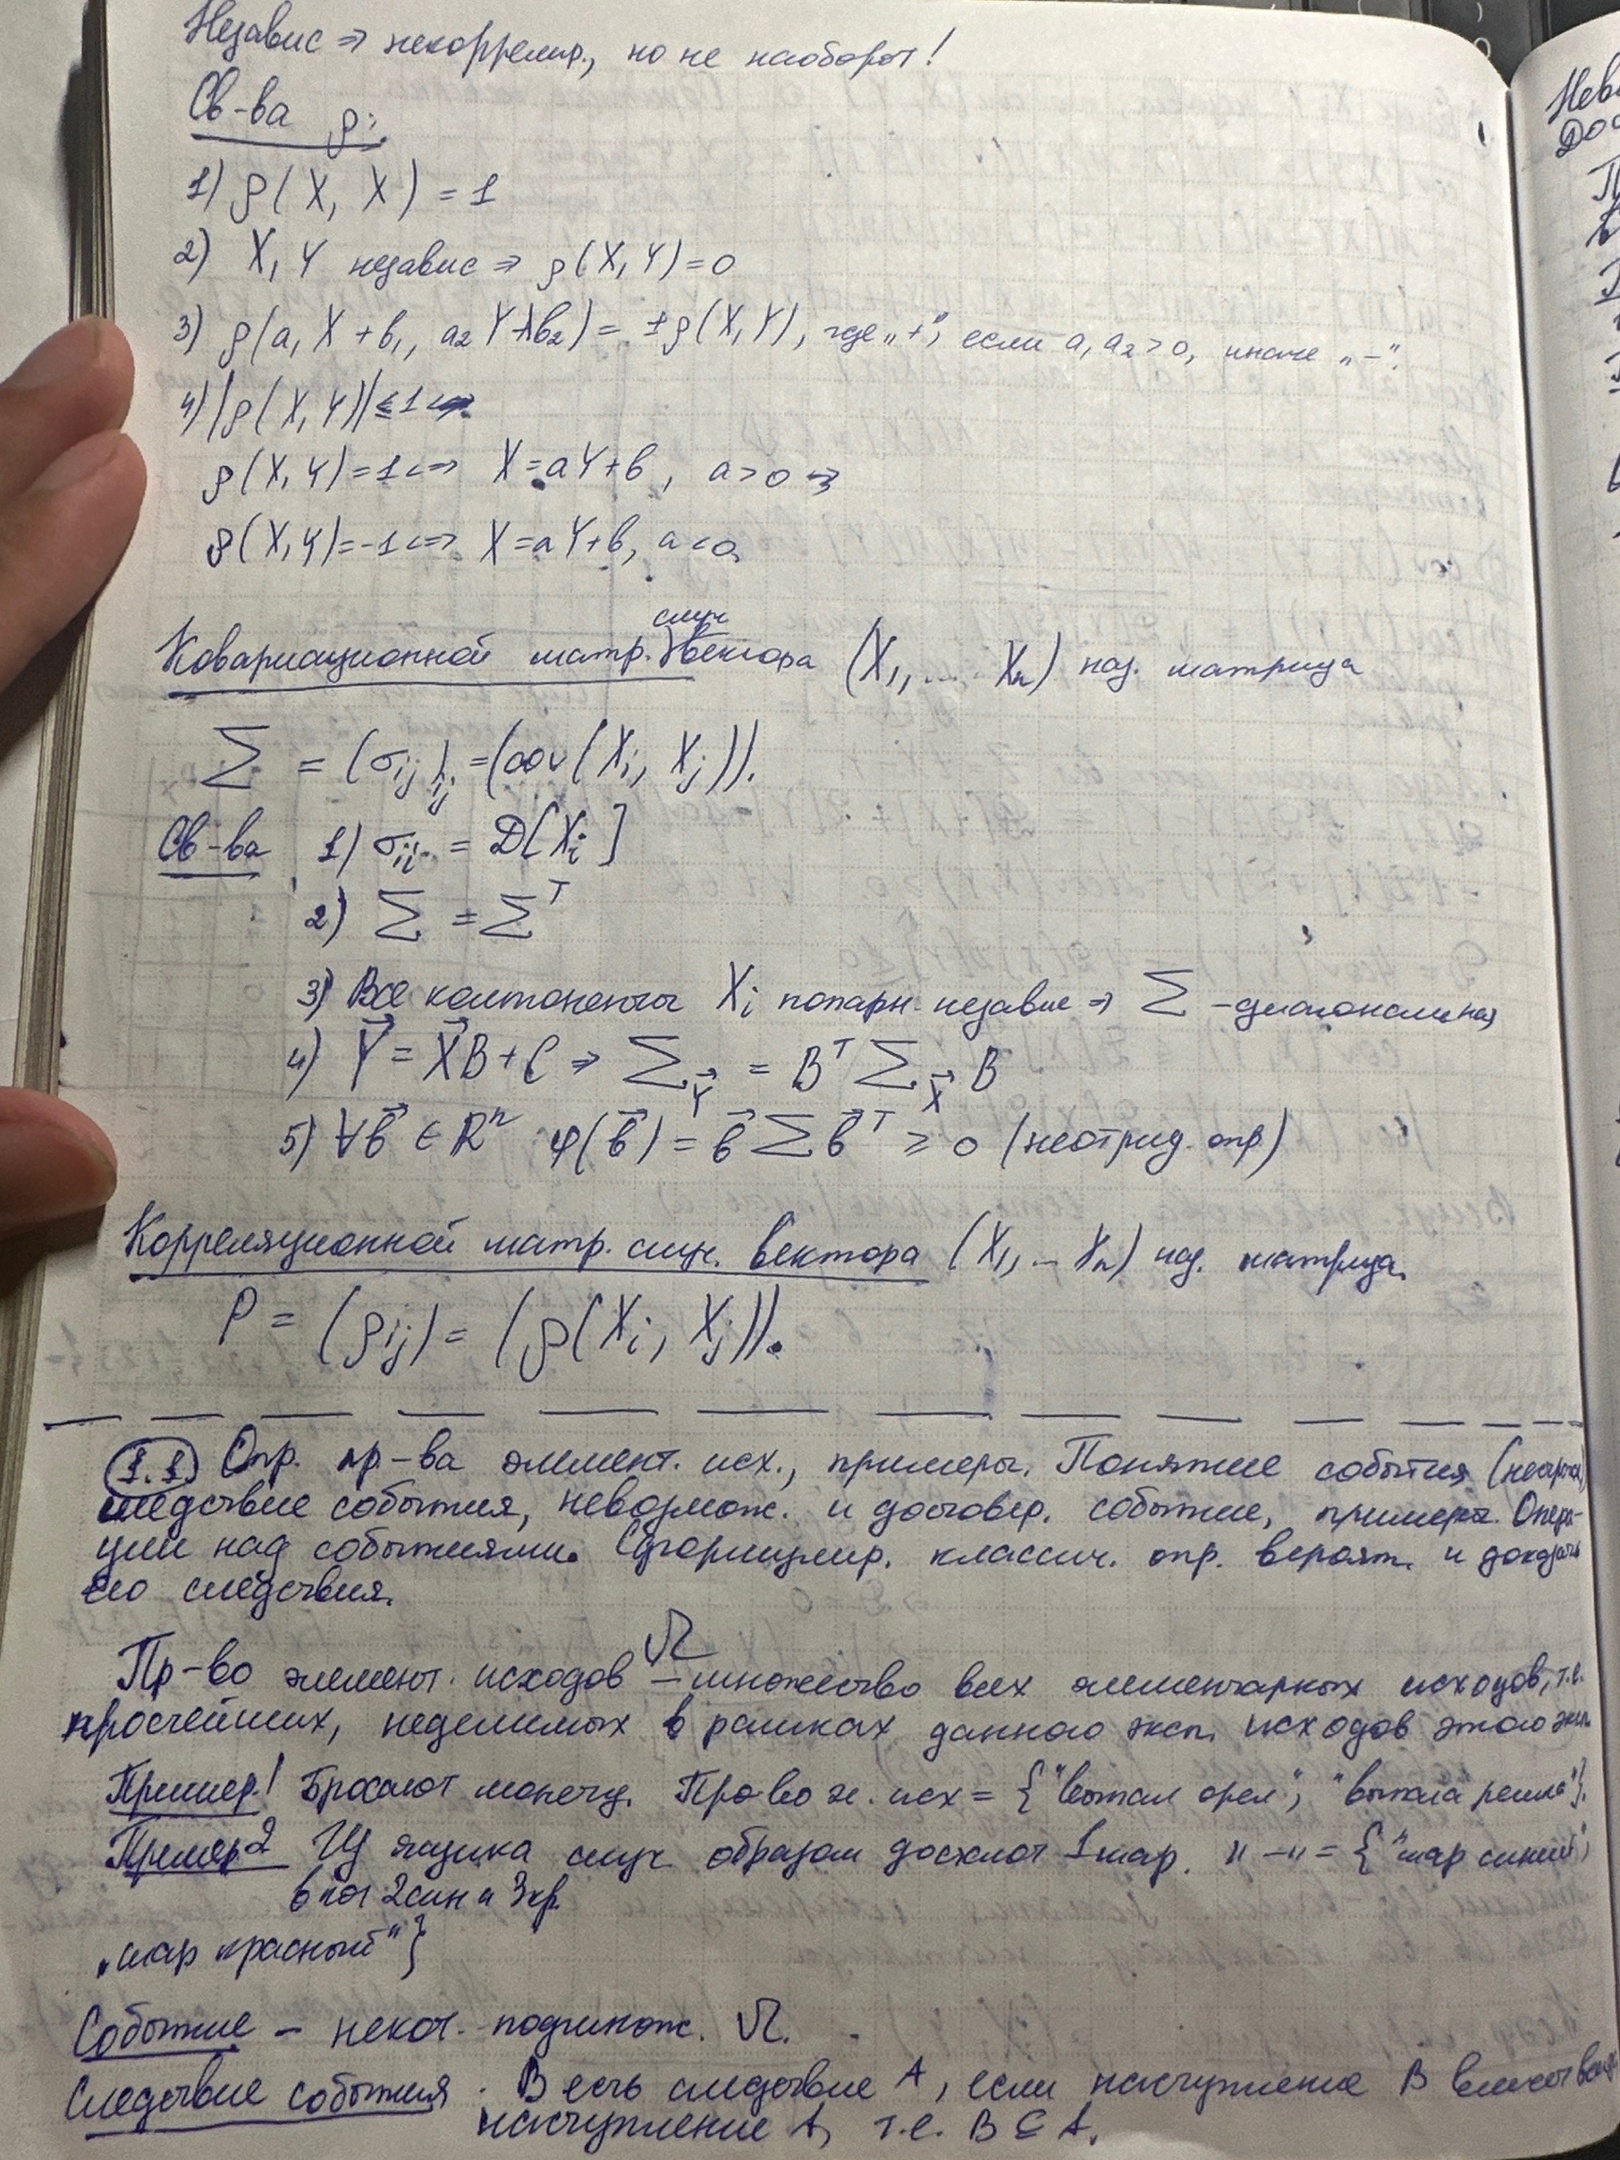 Независ ⇒ некоррелир., но не наоборот!
Св-ва ρ:
1) ρ(X, X) = 1
2) X, Y независ ⇒ ρ(X, Y) = 0
3) ρ(a₁X + b₁, a₂Y + b₂) = ±ρ(X, Y), где „+", если a₁a₂ > 0, иначе „-".
4) |ρ(X, Y)| ≤ 1
ρ(X, Y) = 1 <=> X = aY + b, a > 0
ρ(X, Y) = -1 <=> X = aY + b, a < 0
случ
Ковариационной матр. вектора (X₁, ... Xₙ) наз. матрица
Σ = (σᵢⱼ)ᵢⱼ = (cov(Xᵢ, Xⱼ)).
Св-ва 1) σᵢᵢ = D[Xᵢ]
2) Σ = Σᵀ
3) Все компоненты Xᵢ попарн. независ ⇒ Σ - диагональная
4) Y⃗ = X⃗B + C ⇒ Σ_Y⃗ = Bᵀ Σ_X⃗ B
5) ∀b⃗ ∈ Rⁿ φ(b⃗) = b⃗ Σ b⃗ᵀ ≥ 0 (неотриц. опр)
Корреляционной матр. случ. вектора (X₁, ... Xₙ) наз. матрица
P = (ρᵢⱼ) = (ρ(Xᵢ, Xⱼ)).
1.1. Опр. пр-ва элемент. исх., примеры. Понятие события
следствие события, невозмож. и достовер. событие, примеры. Опера-
ции над событиями. Сформулир. классич. опр. вероят. и доказать
его следствия.
Ω
Пр-во элемент. исходов – множество всех элементарных исходов, т.е.
простейших, неделимых в рамках данного эксп. исходов этого эксп.
Пример 1 Бросают монету. Пр-во э. исх = {"выпал орел", "выпала решка"}.
Пример 2 Из ящика случ образом достают 1 шар. " – " = {"шар синий",
в кот 2 син и 3 кр.
„шар красный"}
Событие – некот. подмнож. Ω.
Следствие события. B есть следствие A, если наступление B
наступление A, т.е. B ⊆ A.
Нев
Дос